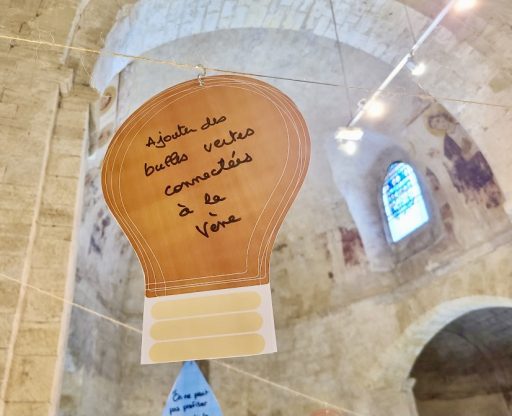 Ajouter des
bulles vertes
connectées
à la
Vène
On ne peut
pas profiter